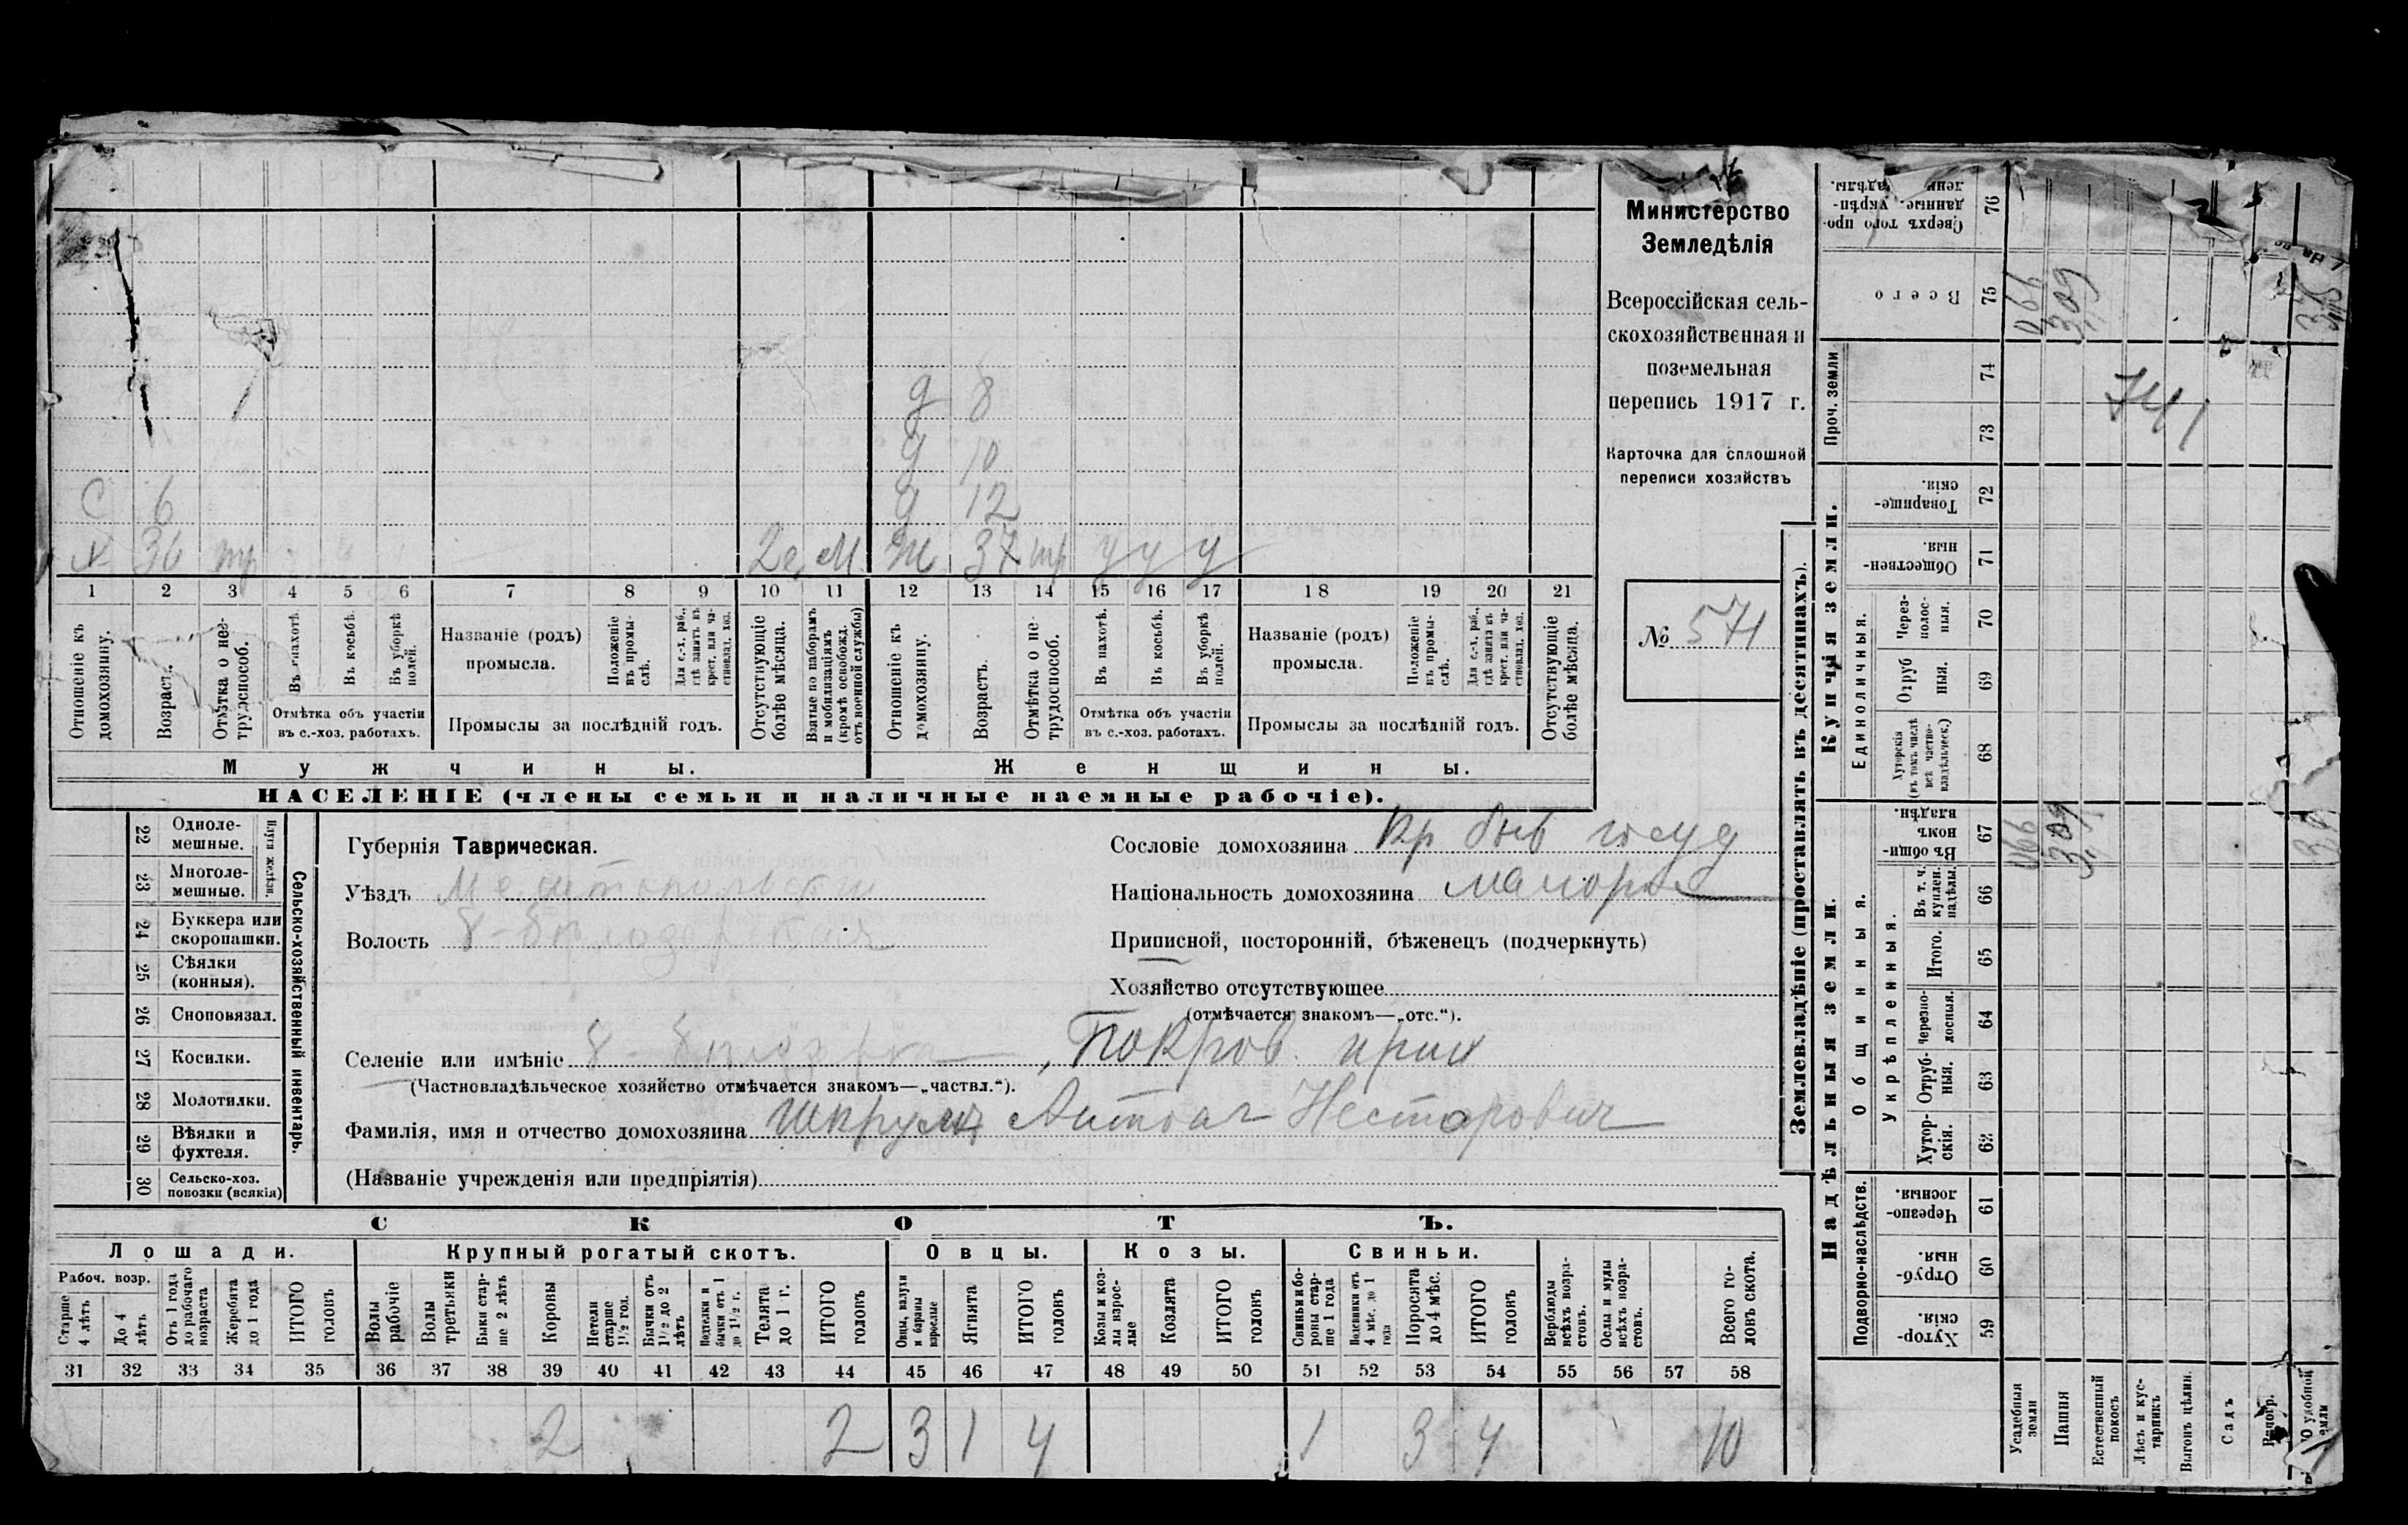 С 6
Х 36 тр 2 г. М. Ж 37 тр у у у
д 8
д 10
д 12
1 2 3 4 5 6 7 8 9 10 11 12 13 14 15 16 17 18 19 20 21
Отношеніе къ домохозяину.
Возрастъ.
Отмѣтка о нетрудоспособ.
Въ пахотѣ.
Въ косьбѣ.
Въ уборкѣ полей.
Отмѣтка объ участіи въ с.-хоз. работахъ.
Названіе (родъ) промысла.
Положеніе въ промыслѣ.
Для с.-х. раб., гдѣ занятъ въ крест. или частновлад. хоз.
Промыслы за послѣдній годъ.
Отсутствующіе болѣе мѣсяца.
Взятые по наборамъ и мобилизаціямъ (кромѣ освобожд. отъ военной службы)
Отношеніе къ домохозяину.
Возрастъ.
Отмѣтка о нетрудоспособ.
Въ пахотѣ.
Въ косьбѣ.
Въ уборкѣ полей.
Отмѣтка объ участіи въ с.-хоз. работахъ.
Названіе (родъ) промысла.
Положеніе въ промыслѣ.
Для с.-х. раб., гдѣ занята въ крест. или частновлад. хоз.
Промыслы за послѣдній годъ.
Отсутствующіе болѣе мѣсяца.
Мужчины. Женщины.
НАСЕЛЕНІЕ (члены семьи и наличные наемные рабочіе).
Министерство
Земледѣлія
Всероссійская сель-
скохозяйственная и
поземельная
перепись 1917 г.
Карточка для сплошной
переписи хозяйствъ
№ 571
22 Однолемешные.
23 Многолемешные.
Плуги желѣзн.
24 Буккера или скоропашки.
25 Сѣялки (конныя).
26 Сноповязал.
27 Косилки.
28 Молотилки.
29 Вѣялки и фухтеля.
30 Сельско-хоз. повозки (всякія)
Сельско-хозяйственный инвентарь.
Губернія Таврическая.
Уѣздъ Мелитопольскій
Волость 8-Бѣлозерская
Селеніе или имѣніе 8-Бѣлозерка, Покров. прих
(Частновладѣльческое хозяйство отмѣчается знакомъ—„частвл.“).
Фамилія, имя и отчество домохозяина Нестарович
(Названіе учрежденія или предпріятія)
Сословіе домохозяина Кр быв госуд
Національность домохозяина малорос
Приписной, посторонній, бѣженецъ (подчеркнуть)
Хозяйство отсутствующее
(отмѣчается знакомъ—„отс.“).
СКОТЪ.
Лошади. Крупный рогатый скотъ. Овцы. Козы. Свиньи.
Рабоч. возр.
Старше 4 лѣтъ
До 4 лѣтъ
Отъ 1 года до рабочаго возраста
Жеребята до 1 года
ИТОГО головъ
Волы рабочіе
Волы третьяки
Быки старше 2 лѣтъ
Коровы
Нетели старше 1½ год.
Бычки отъ 1½ до 2 лѣтъ
Подтелки и бычки отъ 1 до 1½ г.
Телята до 1 г.
ИТОГО головъ
Овцы, валухи и бараны взрослые
Ягнята
ИТОГО головъ
Козы и козлы взрослые
Козлята
ИТОГО головъ
Свиньи и боровы старше 1 года
Подсвинки отъ 4 мѣс. до 1 года
Поросята до 4 мѣс.
ИТОГО головъ
Верблюды всѣхъ возрастовъ.
Ослы и мулы всѣхъ возрастовъ.
Всего головъ скота.
31 32 33 34 35 36 37 38 39 40 41 42 43 44 45 46 47 48 49 50 51 52 53 54 55 56 57 58
2 2 3 1 4 1 3 4 10
Землевладѣніе (проставлять въ десятинахъ).
Надѣльныя земли. Купчія земли. Проч. земли
Подворно-наслѣдств.
Общинныя.
Укрѣпленныя.
Единоличныя.
Хуторскія. 59
Отрубныя. 60
Черезполосныя. 61
Хуторскія. 62
Отрубныя. 63
Черезполосныя. 64
Итого. 65
Въ т. ч. куплен. надѣлы. 66
Въ общинномъ владѣн. 67
Хуторскія (въ томъ числѣ всѣ частновладѣльческ.) 68
Отрубныя. 69
Черезполосныя. 70
Общественныя. 71
Товарищескія. 72
73
74
Всего 75
Сверхъ того проданные укрѣплен. надѣлы. 76
Усадебныя земли 066 066
Пашня 309 309
Естественный покосъ
Лѣсъ и кустарникъ
Выгонъ цѣлин.
Садъ
Виногр.
741